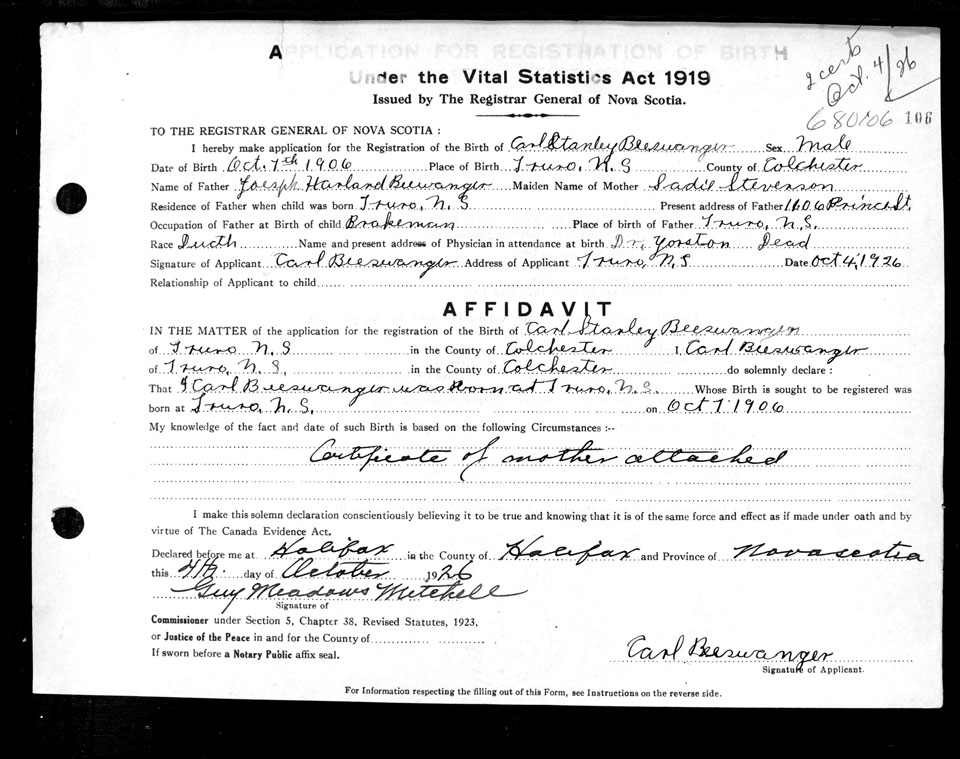 APPLICATION FOR REGISTRATION OF BIRTH
Under the Vital Statistics Act 1919
Issued by The Registrar General of Nova Scotia.
2 cert
Oct. 4/26
680106 106
TO THE REGISTRAR GENERAL OF NOVA SCOTIA :
I hereby make application for the Registration of the Birth of Carl Stanley Beeswanger Sex Male
Date of Birth Oct. 7th 1906 Place of Birth Truro, N.S County of Colchester
Name of Father Joesph Harland Beeswanger Maiden Name of Mother Sadie Stevenson
Residence of Father when child was born Truro, N.S Present address of Father 1606 Prince St.
Occupation of Father at Birth of child Brakeman Place of birth of Father Truro, N.S.
Race Ducth Name and present address of Physician in attendance at birth Dr. Yorston Dead
Signature of Applicant Carl Beeswanger Address of Applicant Truro, N.S Date Oct 4, 1926
Relationship of Applicant to child
AFFIDAVIT
IN THE MATTER of the application for the registration of the Birth of Carl Stanley Beeswanger
of Truro N.S in the County of Colchester I, Carl Beeswanger
of Truro, N.S, in the County of Colchester do solemnly declare :
That I Carl Beeswanger was born at Truro, N.S. Whose Birth is sought to be registered was
born at Truro, N.S. on Oct 7 1906
My knowledge of the fact and date of such Birth is based on the following Circumstances :--
Certificate of mother attached
I make this solemn declaration conscientiously believing it to be true and knowing that it is of the same force and effect as if made under oath and by
virtue of The Canada Evidence Act.
Declared before me at Halifax in the County of Halifax and Province of Nova scotia
this 4th. day of October 1926
Guy Meadows Mitchell
Signature of
Commissioner under Section 5, Chapter 38, Revised Statutes, 1923,
or Justice of the Peace in and for the County of
If sworn before a Notary Public affix seal.
Carl Beeswanger
Signature of Applicant.
For Information respecting the filling out of this Form, see Instructions on the reverse side.